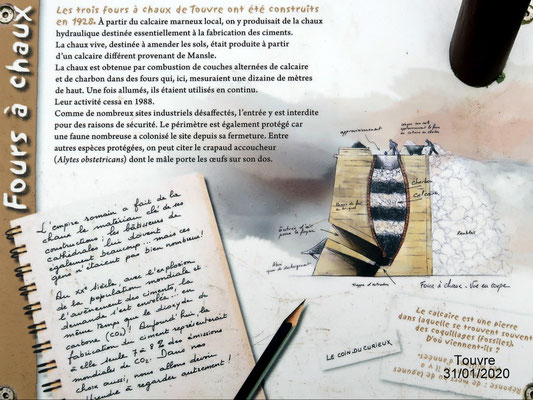 Fours à chaux
Les trois fours à chaux de Touvre ont été construits
en 1928. À partir du calcaire marneux local, on y produisait de la chaux
hydraulique destinée essentiellement à la fabrication des ciments.
La chaux vive, destinée à amender les sols, était produite à partir
d'un calcaire différent provenant de Mansle.
La chaux est obtenue par combustion de couches alternées de calcaire
et de charbon dans des fours qui, ici, mesuraient une dizaine de mètres
de haut. Une fois allumés, ils étaient utilisés en continu.
Leur activité cessa en 1988.
Comme de nombreux sites industriels désaffectés, l'entrée y est interdite
pour des raisons de sécurité. Le périmètre est également protégé car
une faune nombreuse a colonisé le site depuis sa fermeture. Entre
autres espèces protégées, on peut citer le crapaud accoucheur
(Alytes obstetricans) dont le mâle porte les œufs sur son dos.
L'empire romain a fait de la
chaux le matériau clé de ses
constructions ; les bâtisseurs de
cathédrales lui doivent
également beaucoup... mais ces
gens n'étaient pas bien nombreux !
Au XXe siècle, avec l'explosion
de la population mondiale et
l'avènement des ciments, la
demande s'est envolée... en
même temps que le dioxyde de
carbone (CO2) ! Aujourd'hui, la
fabrication du ciment représenterait
à elle seule 7 à 8 % des émissions
mondiales de CO2. Dans nos
choix aussi, nous allons devoir
apprendre à regarder autrement !
approvisionnement
Charbon
Calcaire
Remblai
Entrée d'air
pour le foyer
Four à chaux - Vue en coupe
LE COIN DU CURIEUX
Le calcaire est une pierre
dans laquelle se trouvent souvent
des coquillages (fossiles)
D'où viennent-ils ?
Touvre
31/01/2020